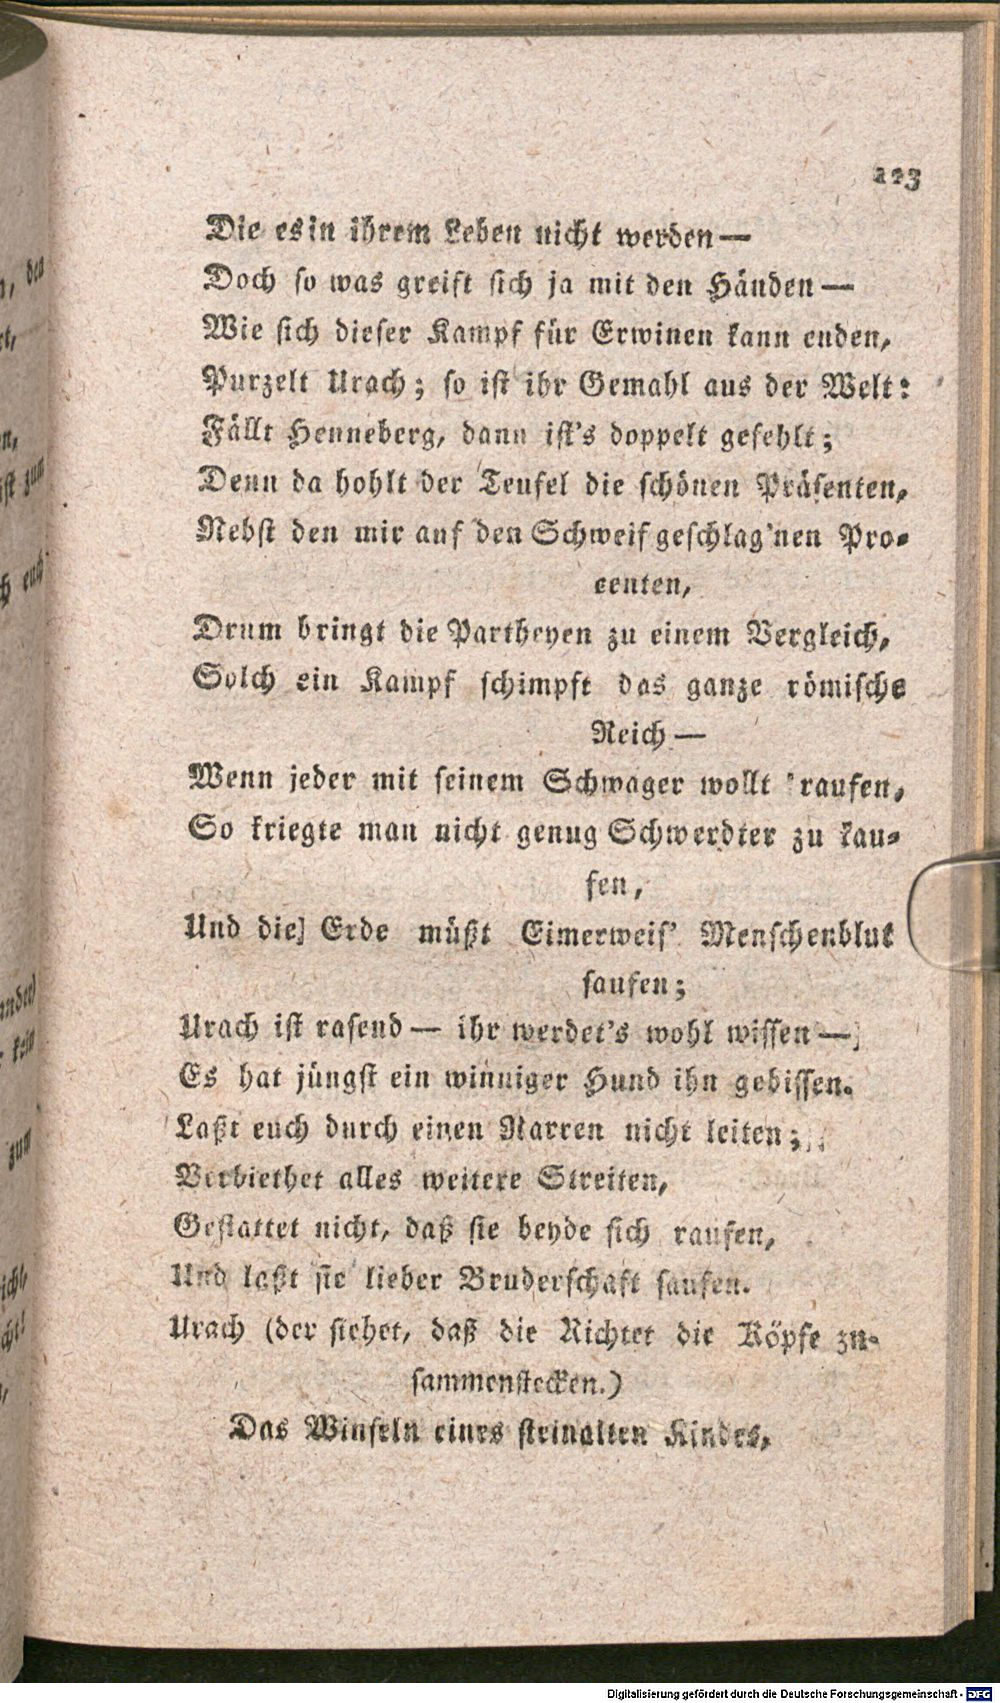 123
Die es in ihrem Leben nicht werden —
Doch so was greift sich ja mit den Händen —
Wie sich dieser Kampf für Erwinen kann enden,
Purzelt Urach; so ist ihr Gemahl aus der Welt:
Fällt Henneberg, dann ist's doppelt gefehlt;
Denn da hohlt der Teufel die schönen Präsenten,
Nebst den mir auf den Schweif geschlag'nen Pro-
centen,
Drum bringt die Partheyen zu einem Vergleich,
Solch ein Kampf schimpft das ganze römische
Reich —
Wenn jeder mit seinem Schwager wollt' raufen,
So kriegte man nicht genug Schwerdter zu kau-
fen,
Und die] Erde müßt Eimerweis' Menschenblut
saufen;
Urach ist rasend — ihr werdet's wohl wissen —
Es hat jüngst ein winniger Hund ihn gebissen.
Laßt euch durch einen Narren nicht leiten;
Verbiethet alles weitere Streiten,
Gestattet nicht, daß sie beyde sich raufen,
Und laßt sie lieber Bruderschaft saufen.
Urach (der siehet, daß die Richter die Köpfe zu-
sammenstecken.)
Das Winseln eines steinalten Kindes,
Digitalisierung gefördert durch die Deutsche Forschungsgemeinschaft - DFG